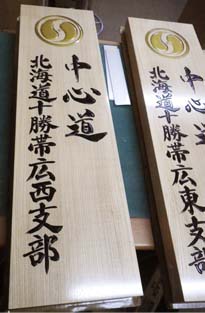 中心道
北海道十勝帯広西支部
中心道
北海道十勝帯広東支部